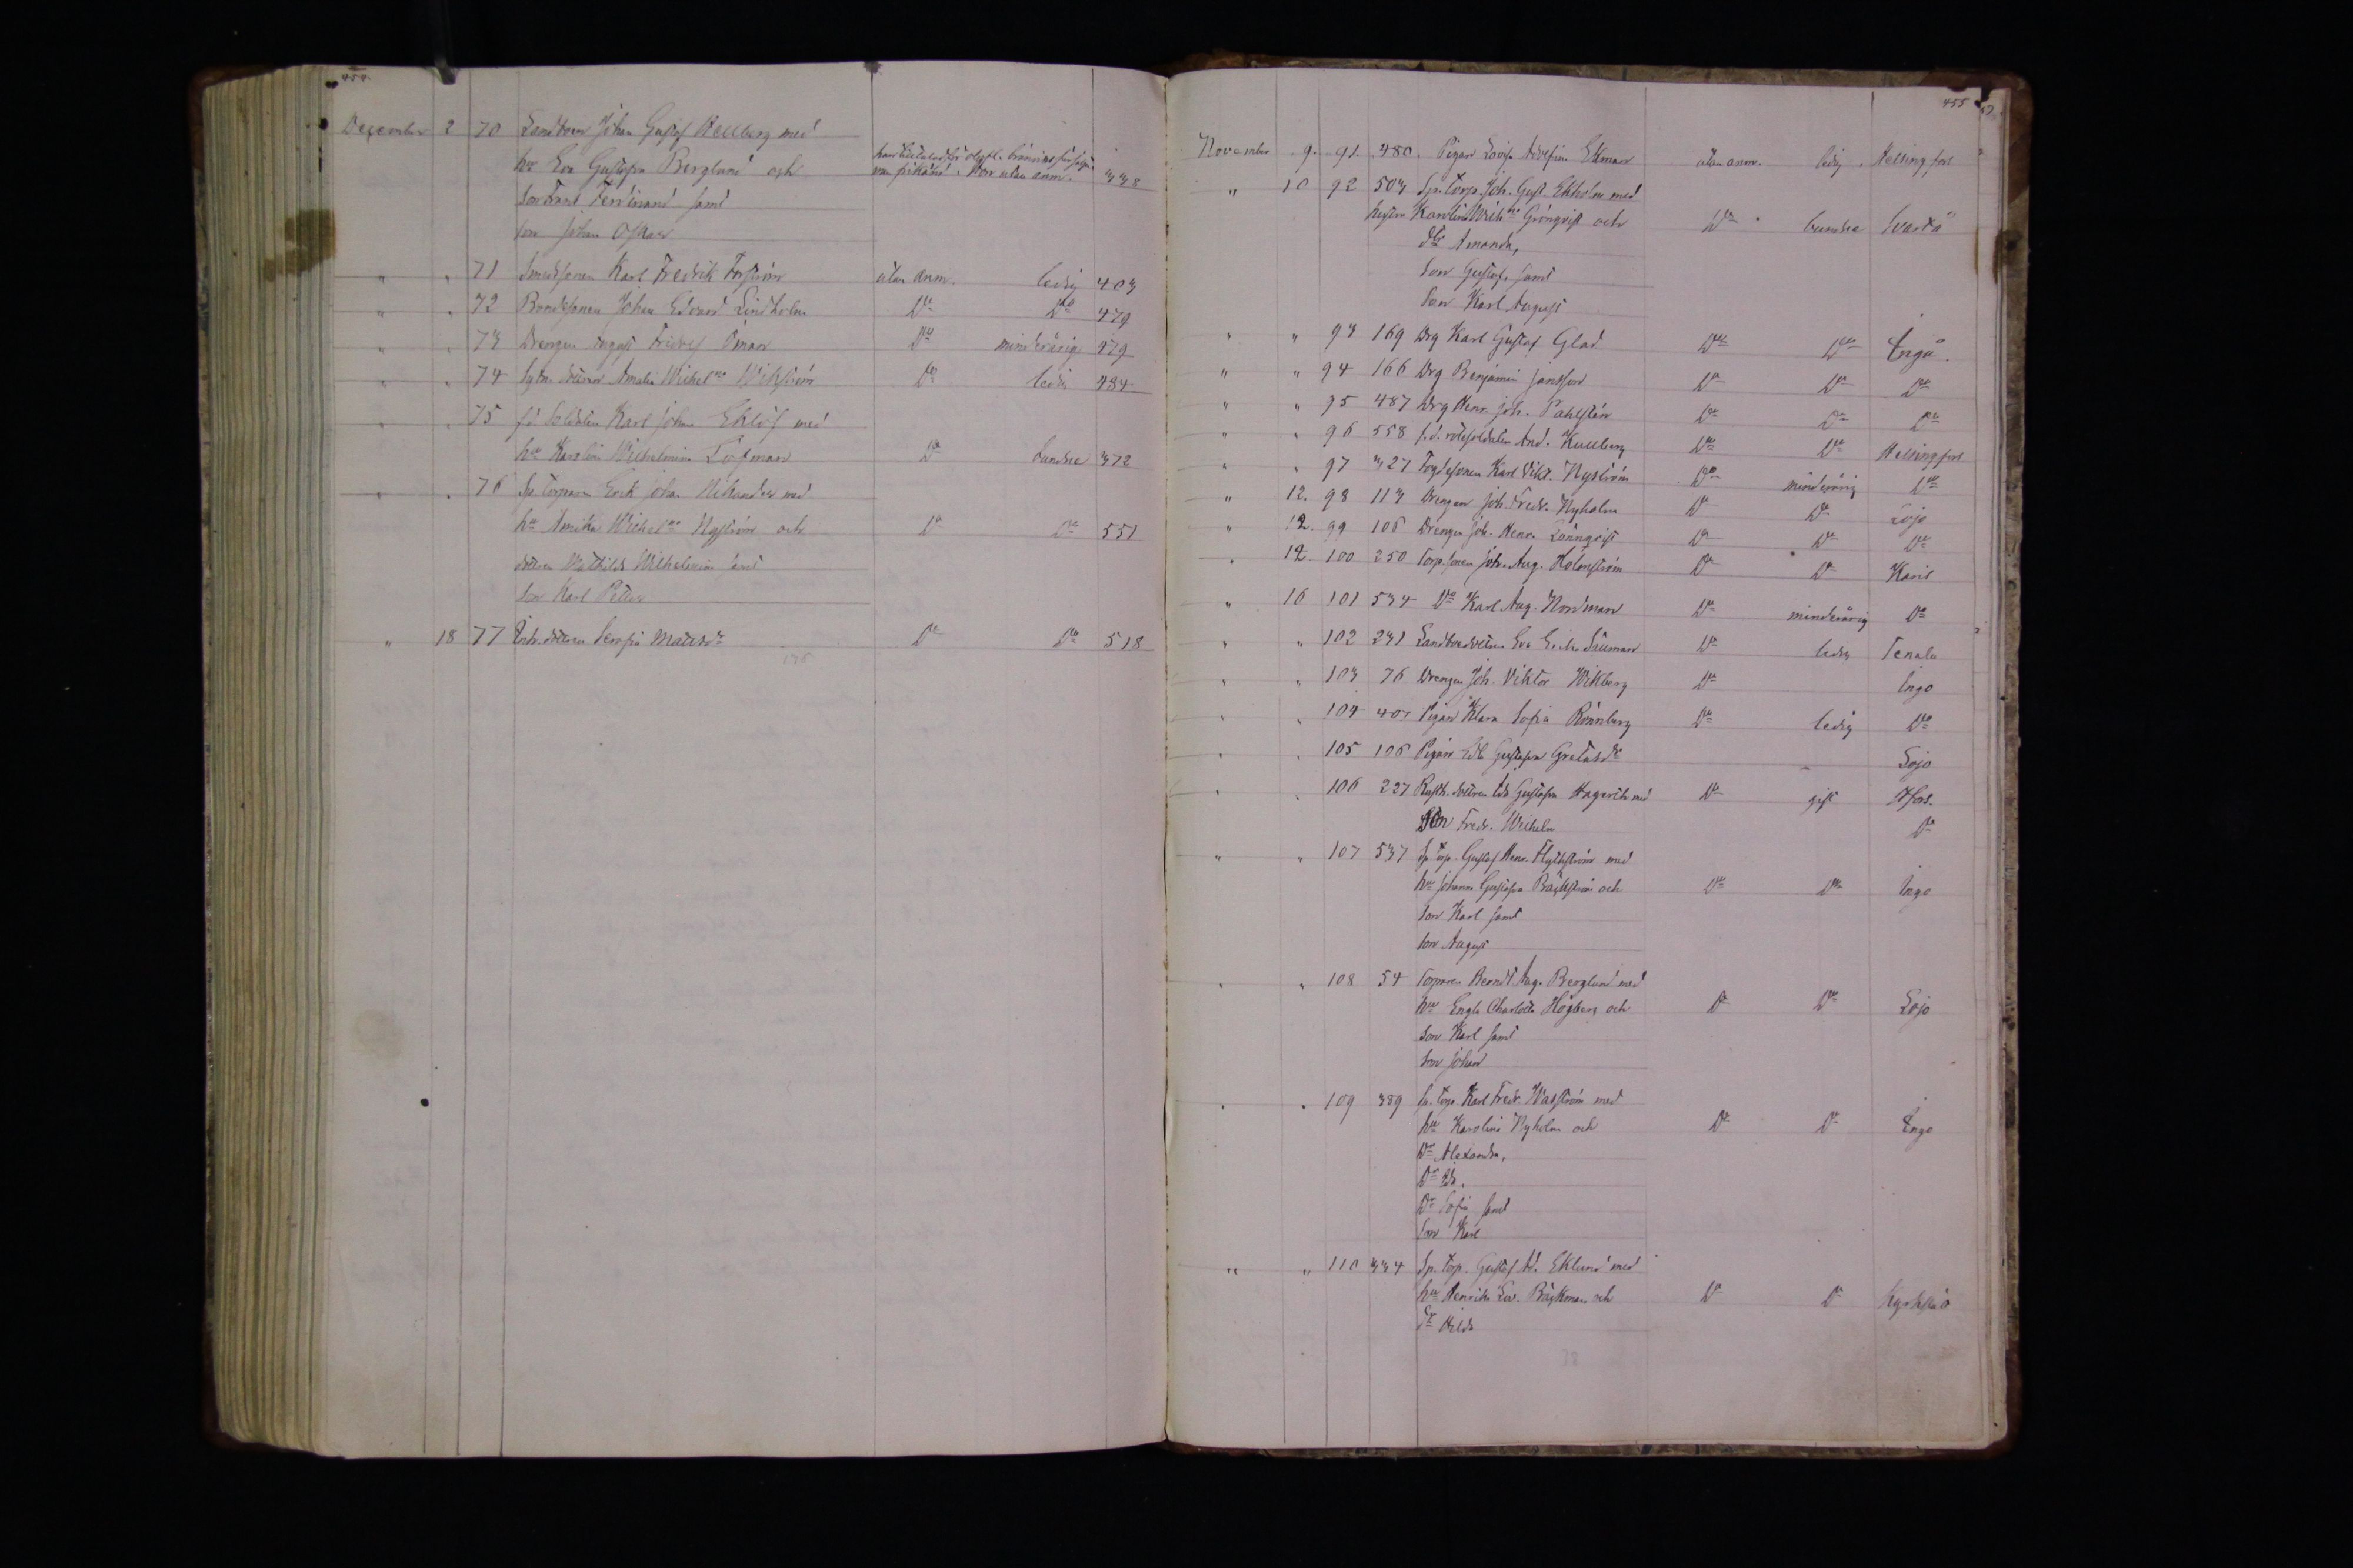 454.
December 2 70 Landboen Johan Gustaf Hellberg med
hu Eva Gustafva Berglund och
338
son Frans Ferdinand samt
son Johan Oskar
" " 71 Smedsonen Karl Fredrik Forström utan anm. ledig 403
" " 72 Bondesonen Johan Edvard Lindholm Do Do 479
" " 73 Drengen August Fridolf Öman Do minderårig 479
" " 74 dottren Amalia Wilhelna Wikström Do ledig 484
" " 75 fd Soldaten Karl Johan Eklöf med
hu Karolina Wilhelmina Löfman Do bundne 372
" " 76 Sp. Torparen Erik Johan Nikander med
hu Amalia Wilhelna Nyström och Do Do 551
dottren Mathilda Wilhelmina samt
son Karl Petter
" 18 77 Inh. dottren Serafia Matsdr Do Do 518
136
455
November 9. 91. 480. Pigan Lovisa Adolfina Ekman utan anm. ledig. Helsingfors
" 10 92 503 Sp. Torp. Joh. Gust. Ekholm med
hustru Karolina Wilhna Grönqvist och Do bundne Svartå
dtr Amanda,
son Gustaf samt
son Karl August
" " 93 169 Drg Karl Gustaf Glad Do Do Ingå.
" " 94 166 Drg Benjamin Jansson Do Do Do
" " 95 487 Drg Henr. Joh. Pahlsten Do Do Do
" " 96 558 f.d. rotesoldaten And. Kullberg Do Do Helsingfors
" " 97 327 Fogdesonen Karl Vikt. Nyström Do minderårig Do
" 12. 98 113 Drengen Joh. Fredr. Nyholm Do Do Lojo
" 12. 99 106 Drengen Joh. Henr. Lönnqvist Do Do Do
" 12 100 250 Torp. sonen Joh. Aug. Holmström Do Do Karis
" 16 101 534 Do Karl Aug. Nordman Do minderårig Do
" " 102 231 Landboedottren Eva Erika Do ledig Tenala
" " 103 76 Drengen Joh. Viktor Wikberg Do Ingo
" " 104 407 Pigan Klara Sofia Rönnberg Do ledig Do
" " 105 106 Pigan Eda Gustafva Gretasdr Lojo
" " 106 227 Rusth. dottren Ida Gustafva Hagert med Do gift Hfors.
son Fredr. Wilhelm Do
" " 107 537 Sp. Torp. Gustaf Henr. Flyckström med
hu Johanna Gustafva Bäckström och Do Do Ingo
son Karl samt
son August
" " 108 54 Torparen Berndt Aug. Berglund med
hu Engla Charlotta Högberg och Do Do Lojo
son Karl samt
son Johan
" " 109 389 Sp. Torp. Karl Fredr. Wasström med
hu Karolina Nyholm och Do Do Ingo
Dr Alexandra,
Dr Ida,
Dr Sofia samt
son Karl
" " 110 334 Sp. Torp. Gustaf Ad. Eklund med
hu Henrika Lov. Bäckman och Do Do Kyrkslätt
dr Hilda
78